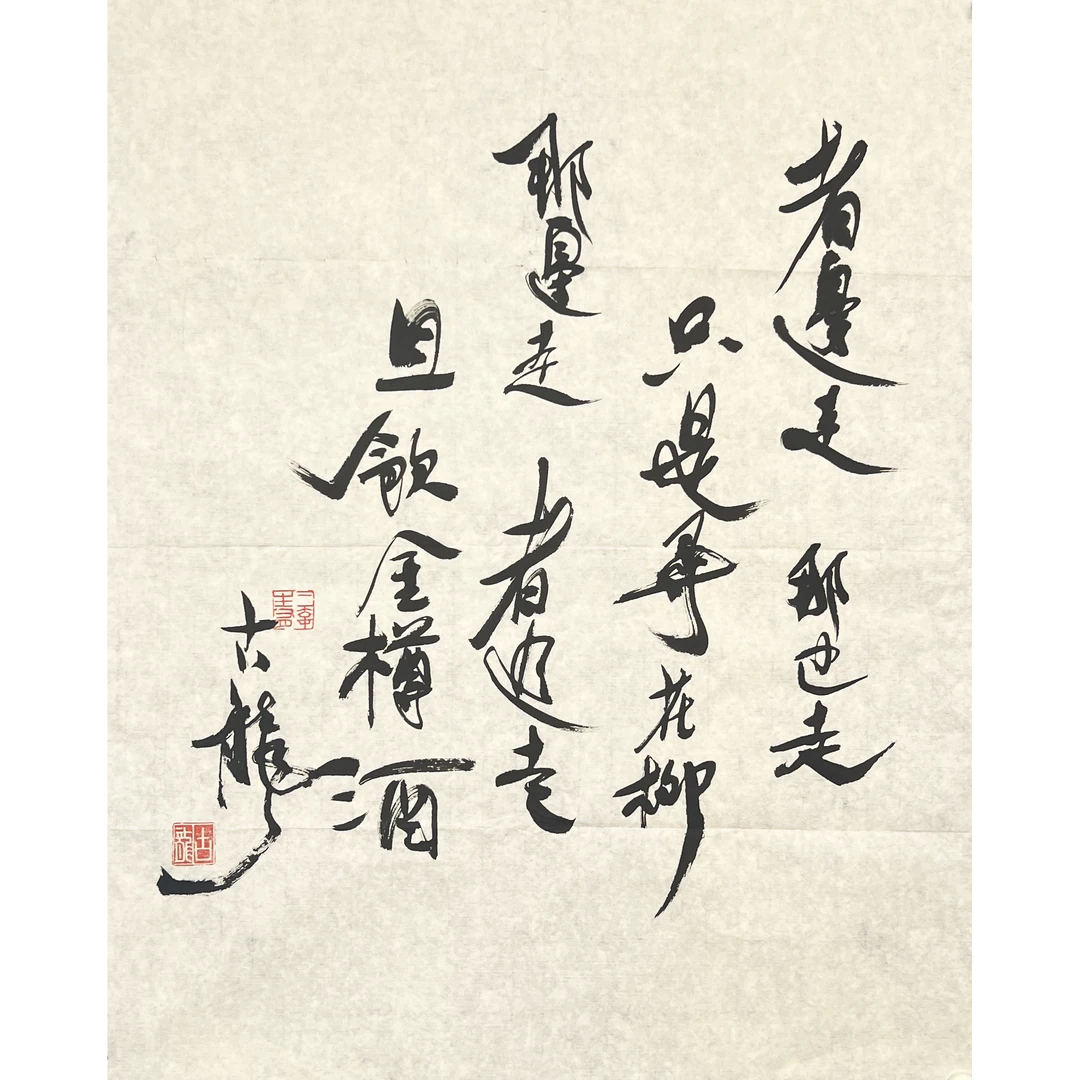 者邊走 那边走
只是尋花柳
那邊走 者边走
且飲金樽酒
古龍
古龍